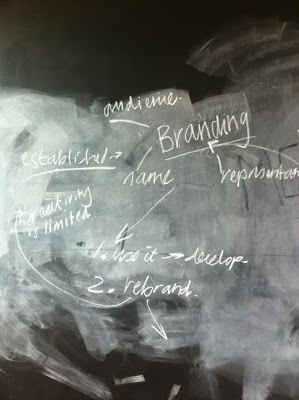 audience.
Branding
established →
name
representat
creativity
is limited
1. Use it → develop.
2. rebrand.